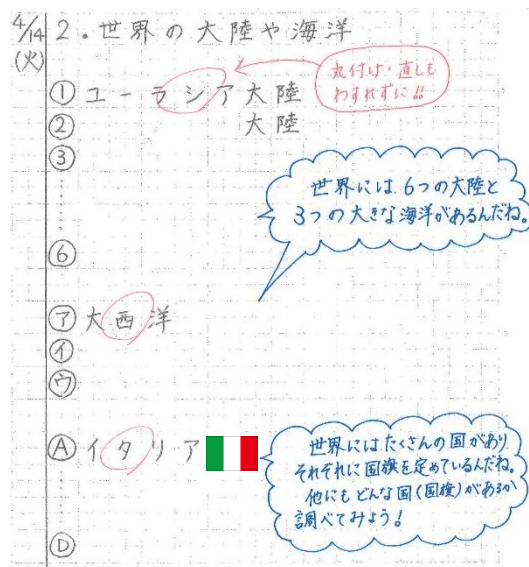 4/14
(火)
2.世界の大陸や海洋
丸付け・直しも
わすれずに!!
①ユーラシア大陸
② 大陸
③
世界には、6つの大陸と
3つの大きな海洋があるんだね。
⑥
㋐大西洋
㋑
㋒
Ⓐイタリア
世界にはたくさんの国があり
それぞれに国旗を定めているんだね。
他にもどんな国(国旗)があるか
調べてみよう!
Ⓓ